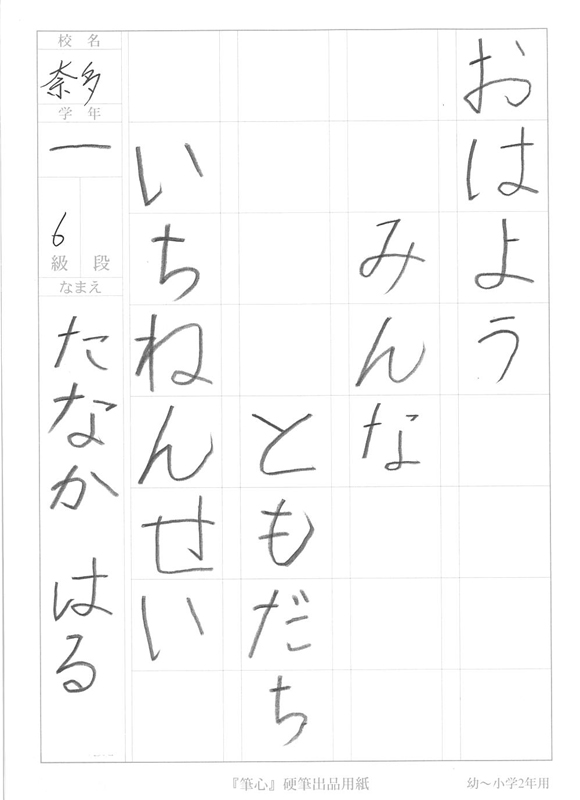 おはよう
みんな
ともだち
いちねんせい
校名
奈多
学年
一
6
級 段
なまえ
たなか はる
『筆心』硬筆出品用紙
幼～小学2年用